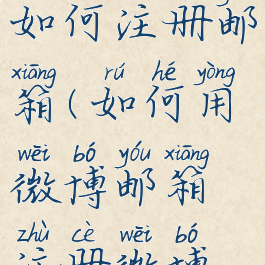 如何注册邮
xiāng rú hé yòng
箱(如何用
wēi bó yóu xiāng
微博邮箱
zhù cè wēi bó
注册微博